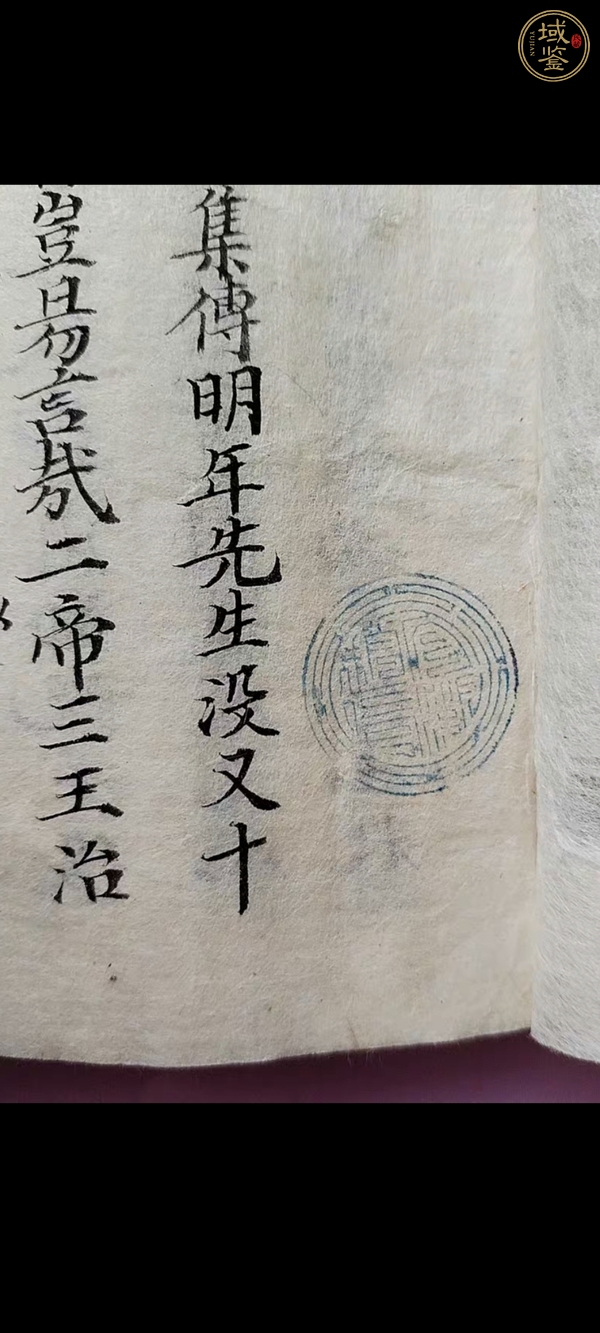 集傳明年先生沒又十
豈易言哉二帝三王治
域鉴
YUJIAN